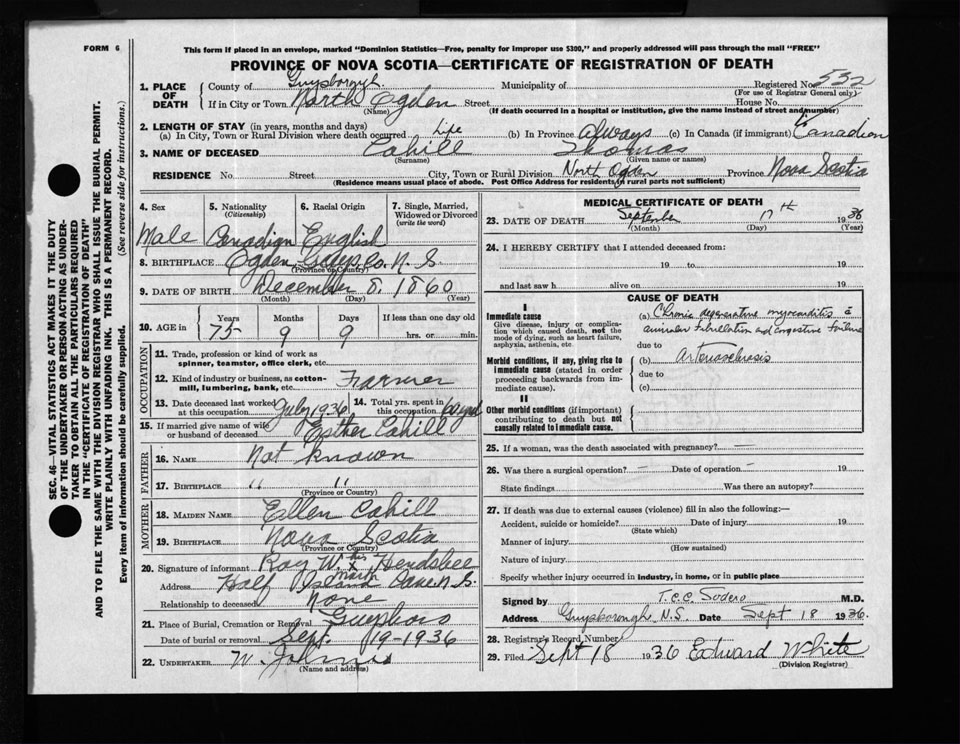 FORM 6
This form if placed in an envelope, marked "Dominion Statistics—Free, penalty for improper use $300," and properly addressed will pass through the mail "FREE"
PROVINCE OF NOVA SCOTIA—CERTIFICATE OF REGISTRATION OF DEATH
1. PLACE OF DEATH
County of Guysborough Municipality of Registered No. 532
(For use of Registrar General only)
If in City or Town North Ogden Street House No.
(Name) (If death occurred in a hospital or institution, give the name instead of street and number)
2. LENGTH OF STAY (in years, months and days)
(a) In City, Town or Rural Division where death occurred Life (b) In Province always (c) In Canada (if immigrant) Canadian
3. NAME OF DECEASED Cahill Thomas
(Surname) (Given name or names)
RESIDENCE No. Street City, Town or Rural Division North Ogden Province Nova Scotia
(Residence means usual place of abode. Post Office Address for residents in rural parts not sufficient)
SEC. 46—VITAL STATISTICS ACT MAKES IT THE DUTY
OF THE UNDERTAKER OR PERSON ACTING AS UNDER-
TAKER TO OBTAIN ALL THE PARTICULARS REQUIRED
IN THE "CERTIFICATE OF REGISTRATION OF DEATH"
AND TO FILE THE SAME WITH THE DIVISION REGISTRAR WHO SHALL ISSUE THE BURIAL PERMIT.
WRITE PLAINLY WITH UNFADING INK. THIS IS A PERMANENT RECORD.
Every item of information should be carefully supplied. (See reverse side for instructions.)
4. Sex 5. Nationality (Citizenship) 6. Racial Origin 7. Single, Married, Widowed or Divorced (write the word)
Male Canadian English
8. BIRTHPLACE Ogden Guys Co. N.S.
(Province or Country)
9. DATE OF BIRTH December 8, 1860
(Month) (Day) (Year)
10. AGE in Years Months Days If less than one day old
75 9 9 hrs. or min.
OCCUPATION
11. Trade, profession or kind of work as spinner, teamster, office clerk, etc.
12. Kind of industry or business, as cotton-mill, lumbering, bank, etc. Framer
13. Date deceased last worked at this occupation July 1936 14. Total yrs. spent in this occupation
15. If married give name of wife or husband of deceased Esther Cahill
FATHER
16. NAME Not Known
17. BIRTHPLACE " "
(Province or Country)
MOTHER
18. MAIDEN NAME Ellen Cahill
19. BIRTHPLACE Nova Scotia
(Province or Country)
20. Signature of informant Roy W. his X mark Hendsbee
Address Half Island Cove N.S.
Relationship to deceased None
21. Place of Burial, Cremation or Removal Guysboro
Date of burial or removal Sept. 19-1936
22. UNDERTAKER
(Name and address)
MEDICAL CERTIFICATE OF DEATH
23. DATE OF DEATH September 17th 1936
(Month) (Day) (Year)
24. I HEREBY CERTIFY that I attended deceased from:
19 to 19
and last saw h alive on 19
CAUSE OF DEATH
I
Immediate cause
Give disease, injury or complication which caused death, not the mode of dying, such as heart failure, asphyxia, asthenia, etc.
(a) Chronic degenerative myocarditis c̄
auricular fibrillation and congestive failure
due to
Morbid conditions, if any, giving rise to immediate cause (stated in order proceeding backwards from immediate cause).
(b) Arteriosclerosis
due to
(c)
II
Other morbid conditions (if important) contributing to death but not causally related to immediate cause.
25. If a woman, was the death associated with pregnancy? —
26. Was there a surgical operation? — Date of operation — 19
State findings Was there an autopsy?
27. If death was due to external causes (violence) fill in also the following:—
Accident, suicide or homicide? Date of injury 19
(State which)
Manner of injury
(How sustained)
Nature of injury
Specify whether injury occurred in industry, in home, or in public place
Signed by T.C.C. Sodero M.D.
Address Guysborough N.S. Date Sept 18 1936.
28. Registrar's Record Number
29. Filed Sept 18 1936 Edward White
(Division Registrar)